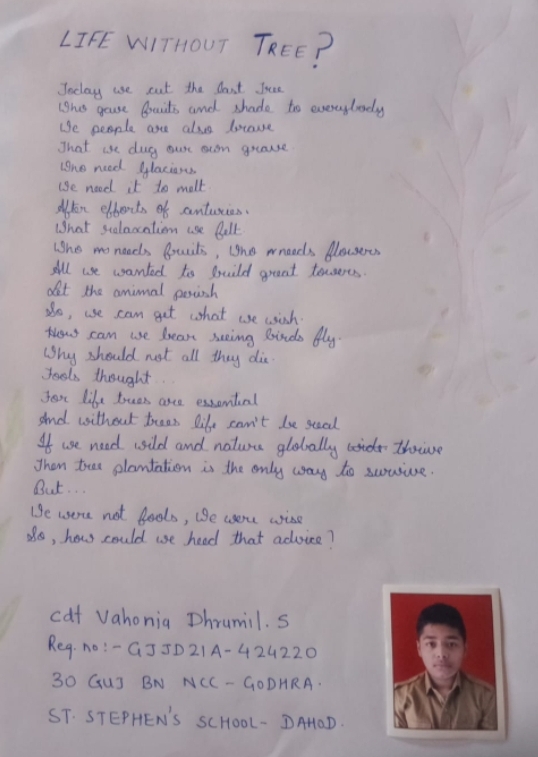 LIFE WITHOUT TREE?
Today we cut the last Tree
Who gave fruits and shade to everybody
We people are also brave
That we dug our own grave.
Who need Glaciers
We need it to melt.
After efforts of centuries.
What relaxation we felt
Who needs fruits, Who needs flowers
All we wanted to build great towers.
Let the animal perish
So, we can get what we wish.
How can we bear seeing birds fly.
Why should not all they die.
Fools thought...
For life trees are essential
And without trees life can't be real
If we need wild and nature globally thrive
Then tree plantation is the only way to survive.
But...
We were not fools, We were wise
So, how could we heed that advice?
Cdt Vahonia Dhrumil. S
Reg. no:- GJJD21A-424220
30 GUJ BN NCC - GODHRA.
ST. STEPHEN'S SCHOOL- DAHOD.